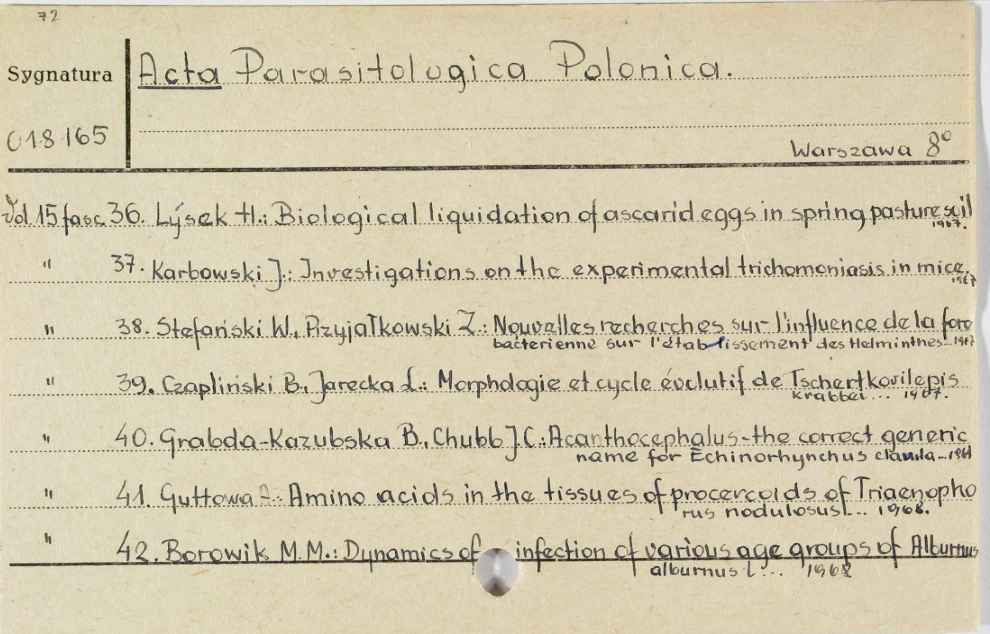 72
Sygnatura
Acta Parasitologica Polonica.
C18165
Warszawa 8°
Vol. 15 fasc. 36. Lýsek H.: Biological liquidation of ascarid eggs in spring pasture soil
1967.
" 37. Karbowski J.: Investigations on the experimental trichomoniasis in mice.
1967
" 38. Stefański W., Przyjałkowski Z.: Nouvelles recherches sur l'influence de la flore
bacterienne sur l'établissement des Helminthes... 1967
" 39. Czapliński B., Jarecka L.: Morphologie et cycle évolutif de Tschertkovilepis
krabbei... 1967.
" 40. Grabda-Kazubska B., Chubb J.C.: Acanthocephalus-the correct generic
name for Echinorhynchus clavula...
" 41. Guttowa A.: Amino acids in the tissues of procercoids of Triaenopho
rus nodulosus L... 1968.
" 42. Borowik M.M.: Dynamics of infection of various age groups of Alburnus
alburnus L... 1968